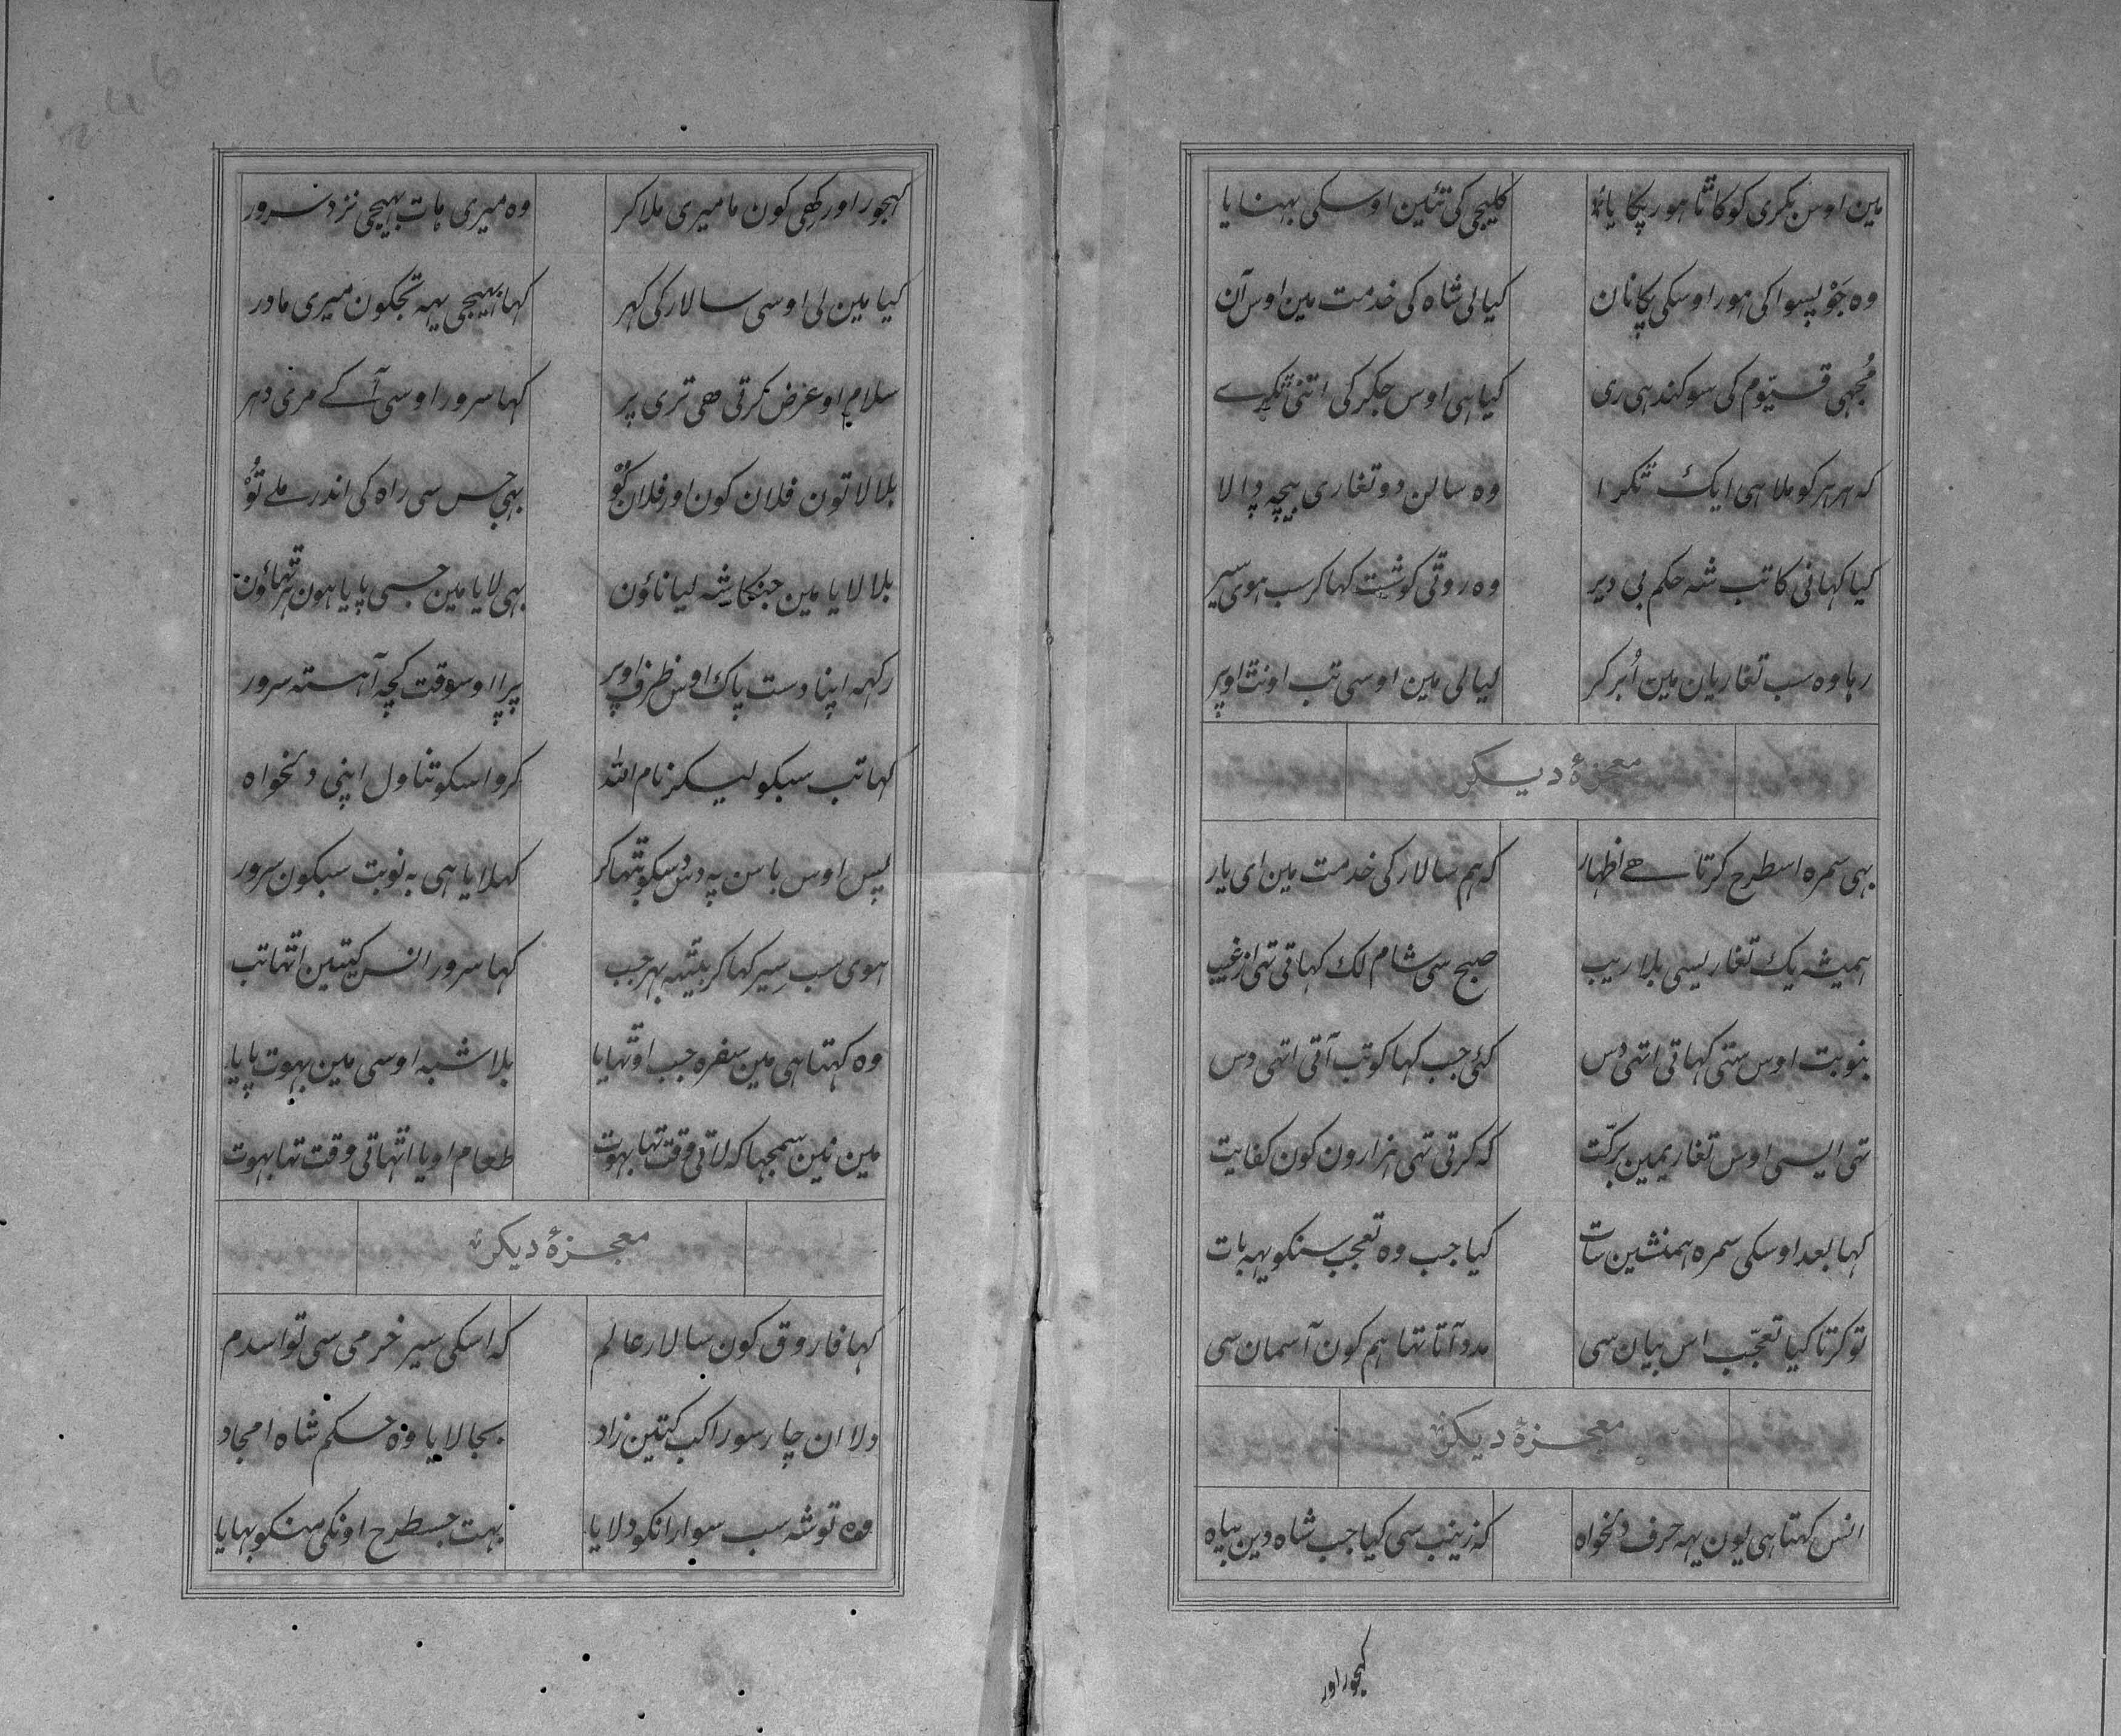 مین اوس بکری کو کاتا هور پکایا کلیجی کی تئین اوسکی بهنایا
وہ جَوْ پسوا کی هور اوسکی پکا نان کیا لی شاہ کی خدمت مین اوس آن
مُجهی قیّوم کی سوکند هی ری کیا هی اوس جکر کی اتنی تکری
که هر هر کو ملا هی ایک تکرا وہ سالن دو تغاری بیچه دالا
کیا کهانی کا تب شه حکم بی دیر وہ روتی کوشت کها کر سب هوی سیر
رها وہ سب تغاریان مین اُبر کر لیا لی مین اوسی تب اونت اوپر
معجزهٔ دیکر
بهی سمره اسطرح کرتا هے اظهار که هم سالار کی خدمت مین ای یار
همیشه یک تغاریسی بلا ریب صبح سی شام لک کهاتی تهی از غیب
بنوبت اوس ستی کهاتی اتهی دس کئی جب کها کو تب آتی اتهی دس
تهی ایسی اوس تغاریمین برکت که کرتی تهی هزارون کون کفایت
کها بعد اوسکی سمره همنشین سات کیا جب وہ تعجب سنکو یهه بات
تو کرتا کیا تعجّب اس بیان سی مدد آتا تها هم کون آسمان سی
معجزهٔ دیکر
انس کهتا هی یون یهه حرف دلخواه که زینب سی کیا جب شاه دین بیاه
کهجور اور
کهجور اور کهی کون ما میری ملا کر وہ میری هات بهیجی نزد سرور
کیا مین لی اوسی سالار کی کهر کها بهیجی یهه تجکون میری مادر
سلام او عرض کرتی هی تری پر کها سرور اوسی آکے مری دهر
بلا لا تون فلان کون اور فلان کوْ بهی جس سی راه کی اندر ملے توُ
بلا لایا مین جنکا شه لیا ناؤن بهی لایا مین جسی پایا هون هر تهاؤن
رکهه اپنا دست پاک اوس ظرف اوپر پرا اوسوقت کچه آهسته سرور
کها تب سبکو لیکر نام الله کرو اسکو تناول اپنی دلخواه
پس اوس باسن په دس دس کو بتها کر کهلایا هی به نوبت سبکون سرور
هوی سب سیر کها کر بیتهه بهر جب کها سرور انس کیتین اتها تب
وہ کهتا هی مین سفره جب اوتهایا بلا شبه اوسی مین بهوت پایا
مین نین سمجها که لاتی وقت تها بهوت طعام او یا اتهاتی وقت تها بهوت
معجزهٔ دیکر
کها فاروق کون سالار عالم که اسکی سیر خرمی سی تو اسدم
دلا ان چار سو راکب کیتین زاد بجا لایا وہ حکم شاه امجاد
وہ توشه سب سوارانکو دلایا بهت جسطرح اونکی منکو بهایا